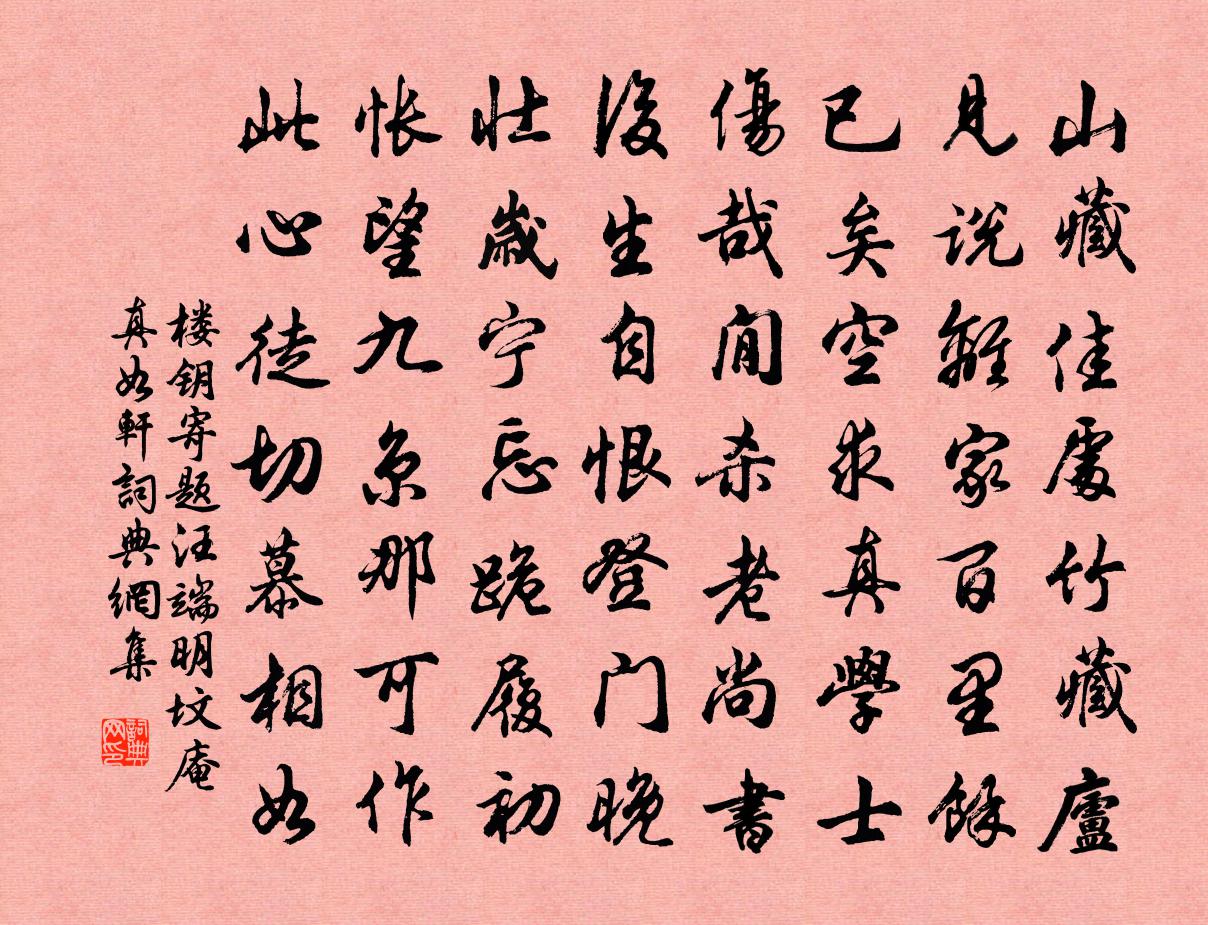 山藏佳處竹藏廬
見説離家百里餘
已矣空求真學士
傷哉閒杀老尚書
後生自恨登门晚
壮歲宁忘跪履初
怅望九原那可作
此心徒切慕相如
楼钥寄题汪端明坟庵
真如軒詞典網集
詞典网印